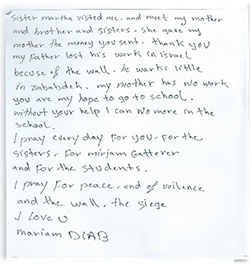 Sister martha visted me. and meet my mother
and brother and sisters. she gave my
mother the money you sent. thank you
my father lost his work in israel
becuse of the wall. he warks little
in zababdeh. my mother has no work
you are my hope to go to school.
without your help I can no more in the
school.
I pray every day for you. for the
sisters. for mirjam Gatterer
and for the students.
I pray for peace. end of voilence
and the wall. the siege
I love U
mariam DIAB